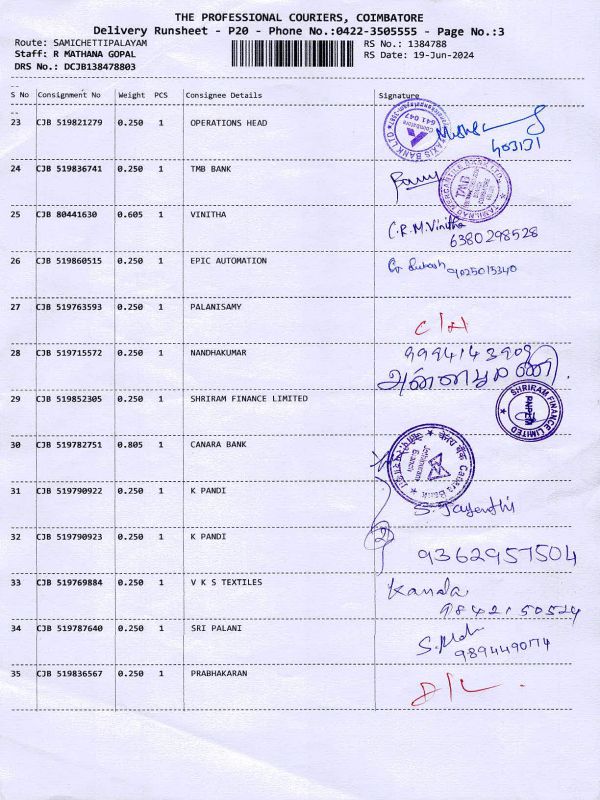 THE PROFESSIONAL COURIERS, COIMBATORE
Delivery Runsheet - P20 - Phone No.:0422-3505555 - Page No.:3
Route: SAMICHETTIPALAYAM
RS No.: 1384788
Staff: R MATHANA GOPAL
RS Date: 19-Jun-2024
DRS No.: DCJB138478803
S No Consignment No Weight PCS Consignee Details Signature
23 CJB 519821279 0.250 1 OPERATIONS HEAD
AXIS BANK LTD
Coimbatore
641 047
403131
24 CJB 519836741 0.250 1 TMB BANK
TAMILNAD MERCANTILE BANK LTD.
TMB
25 CJB 80441630 0.605 1 VINITHA C.R.M.Vinitha
6380298528
26 CJB 519860515 0.250 1 EPIC AUTOMATION
9025013340
27 CJB 519763593 0.250 1 PALANISAMY
28 CJB 519715572 0.250 1 NANDHAKUMAR 9994143909
29 CJB 519852305 0.250 1 SHRIRAM FINANCE LIMITED
SHRIRAM FINANCE LIMITED
30 CJB 519782751 0.805 1 CANARA BANK
केनरा बैंक Canara Bank
Branch
31 CJB 519790922 0.250 1 K PANDI S. Jayenthi
32 CJB 519790923 0.250 1 K PANDI 9362957504
33 CJB 519769884 0.250 1 V K S TEXTILES Kanda
9842150524
34 CJB 519787640 0.250 1 SRI PALANI
9894490174
35 CJB 519836567 0.250 1 PRABHAKARAN